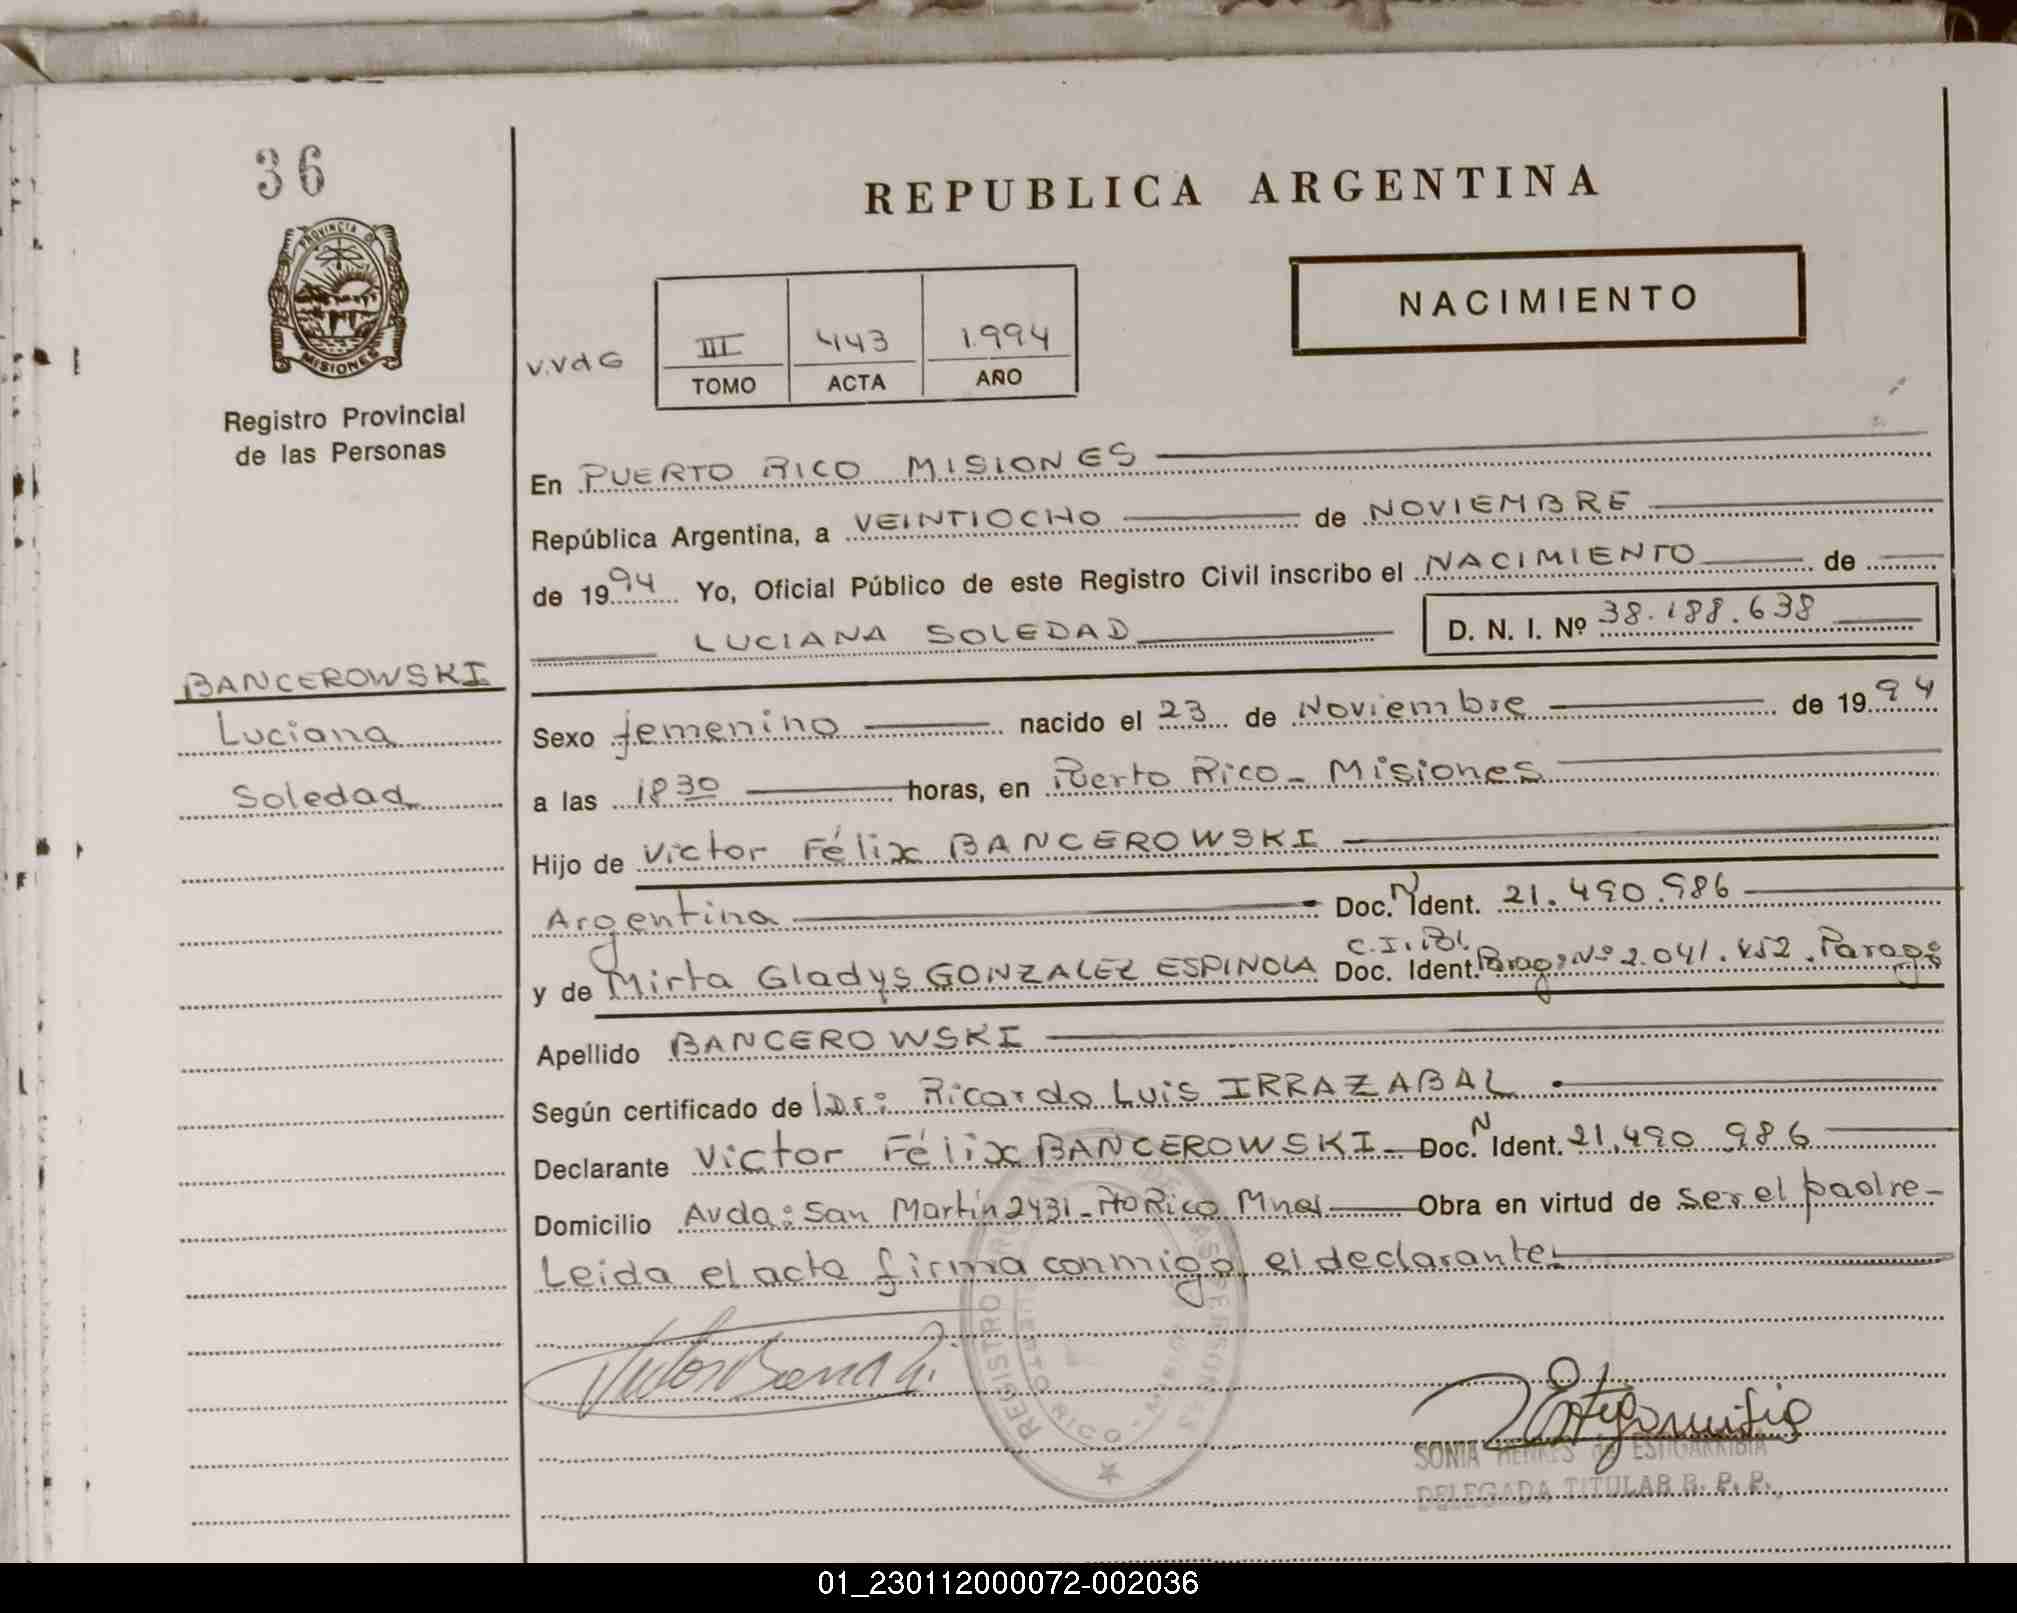 36
PROVINCIA DE
MISIONES
Registro Provincial
de las Personas
BANCEROWSKI
Luciana
Soledad
REPUBLICA ARGENTINA
NACIMIENTO
V.VdG
III 443 1.994
TOMO ACTA AÑO
En PUERTO RICO MISIONES
República Argentina, a VEINTIOCHO de NOVIEMBRE
de 1994 Yo, Oficial Público de este Registro Civil inscribo el NACIMIENTO de
LUCIANA SOLEDAD D. N. I. Nº 38.188.638
Sexo femenino nacido el 23 de Noviembre de 1994
a las 18 30 horas, en Puerto Rico - Misiones
Hijo de Victor Félix BANCEROWSKI
Argentina Doc. N Ident. 21.490.986
C.I. Pol
y de Mirta Gladys GONZALEZ ESPINOLA Doc. Ident. Parag. Nº 2.041.452. Parag.
Apellido BANCEROWSKI
Según certificado de Dr: Ricardo Luis IRRAZABAL
Declarante Victor Félix BANCEROWSKI Doc. N Ident. 21.490.986
Domicilio Avda: San Martín 2431 - Pto Rico Mnes Obra en virtud de ser el padre -
Leida el acta firma conmigo el declarante.
REGISTRO DE LAS PERSONAS
PUERTO RICO - MISIONES
SONIA HENKES de ESTIGARRIBIA
DELEGADA TITULAR R. P. P.
01_230112000072-002036